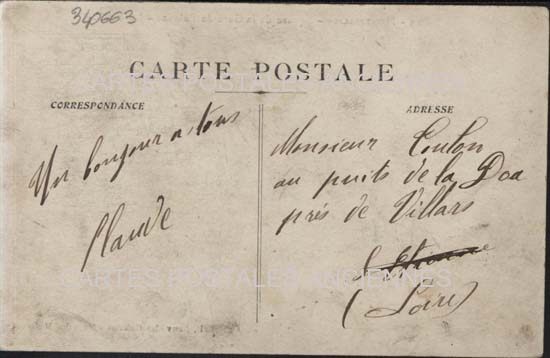 340663
CARTE POSTALE
CARTES POSTALES ANCIENNES
CORRESPONDANCE
ADRESSE
Un bonjour a tous
Claude
Monsieur Coulon
au puits de la Doa
près de Villars
St Etienne
(Loire)
CARTES POSTALES ANCIENNES